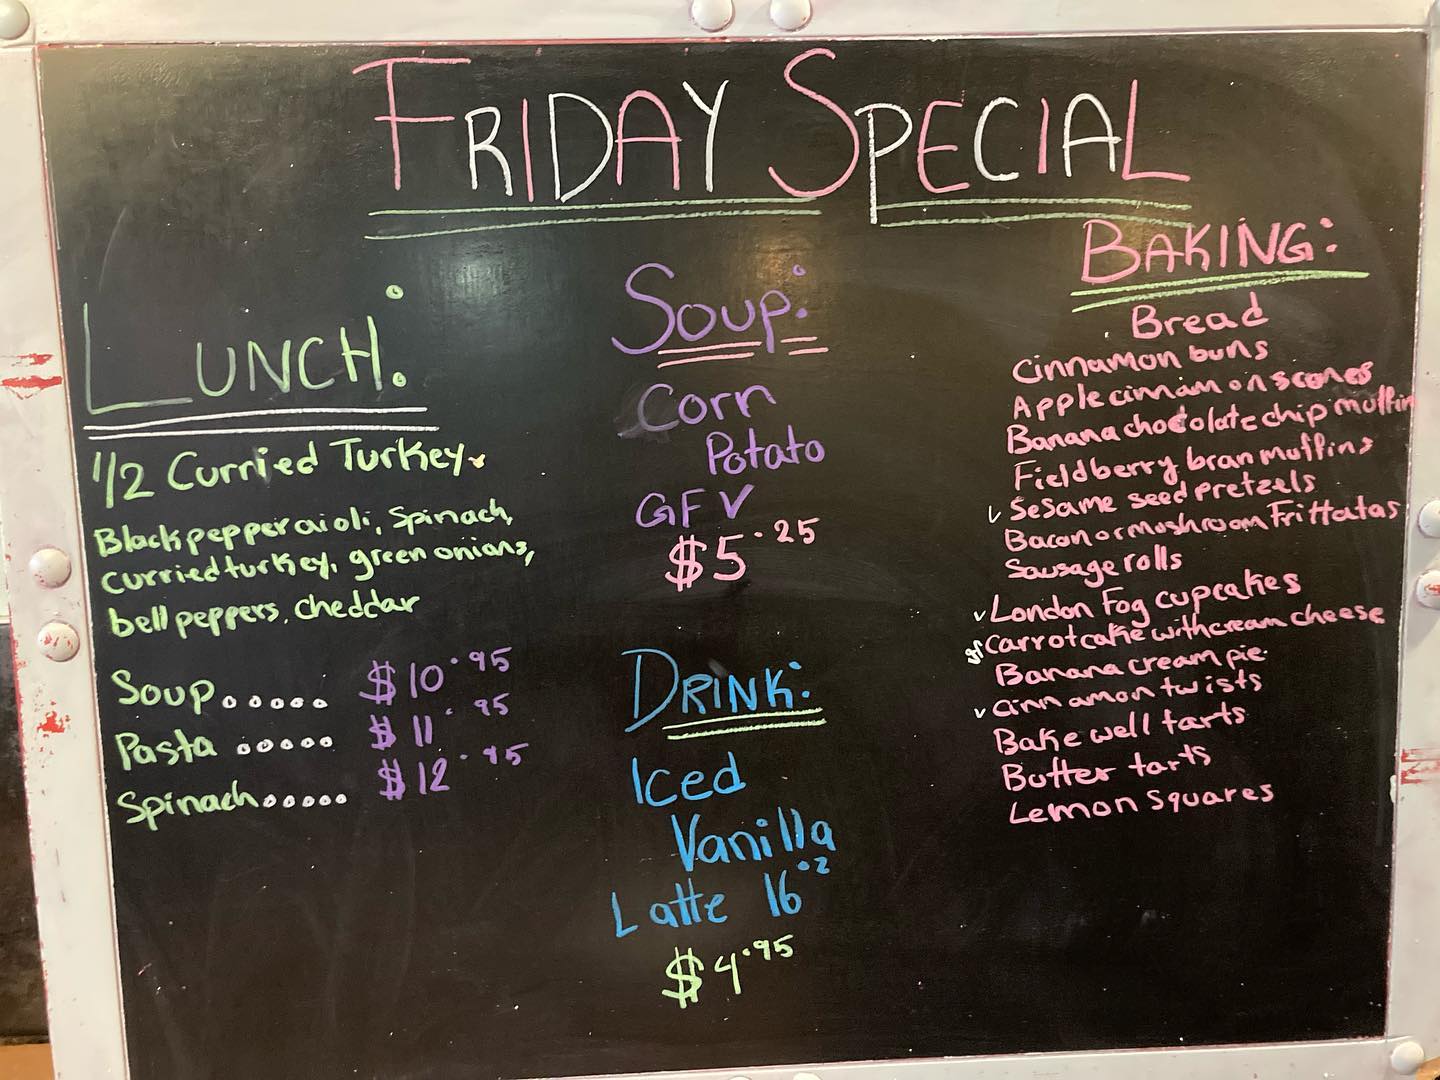 FRIDAY SPECIAL
LUNCH:
1/2 Curried Turkey
Black pepper aioli, Spinach,
curried turkey, green onions,
bell peppers, cheddar
Soup..... $10.95
Pasta ..... $11.95
Spinach..... $12.95
SOUP:
Corn
Potato
GF V
$5.25
DRINK:
Iced
Vanilla
Latte 16oz
$4.95
BAKING:
Bread
Cinnamon buns
Apple cinnamon scones
Banana chocolate chip muffin
Fieldberry bran muffins
v Sesame seed pretzels
Bacon or mushroom Frittatas
Sausage rolls
v London Fog cupcakes
Carrot cake with cream cheese
Banana cream pie
v cinnamon twists
Bake well tarts
Butter tarts
Lemon squares